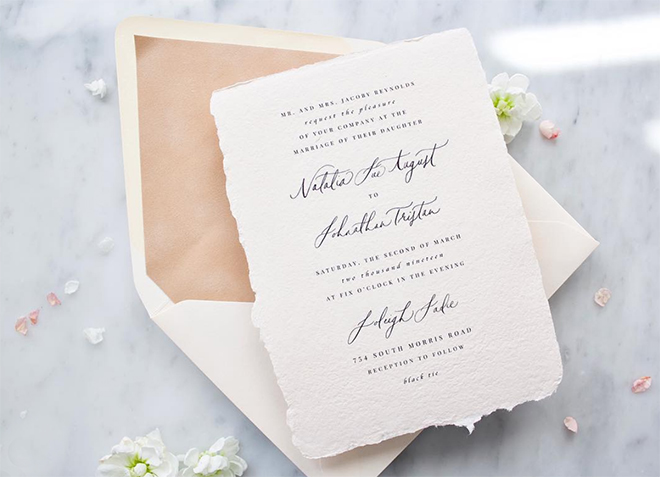 MR. AND MRS. JACORY REYNOLDS
request the pleasure
OF YOUR COMPANY AT THE
MARRIAGE OF THEIR DAUGHTER
Natalia Sue August
TO
Johnathan Tristan
SATURDAY, THE SECOND OF MARCH
two thousand nineteen
AT FIX O'CLOCK IN THE EVENING
Joleigh Sadie
754 SOUTH MORRIS ROAD
RECEPTION TO FOLLOW
black tie